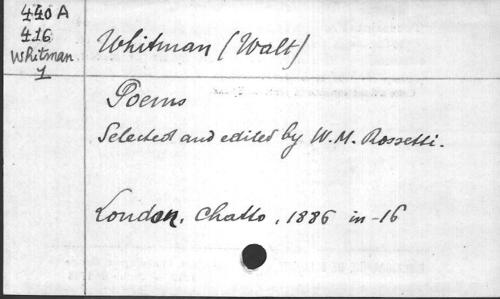 440 A
416
Whitman
1
Whitman (Walt)
Poems
Selected and edited by W.M. Rossetti.
London, Chatto, 1886 in-16